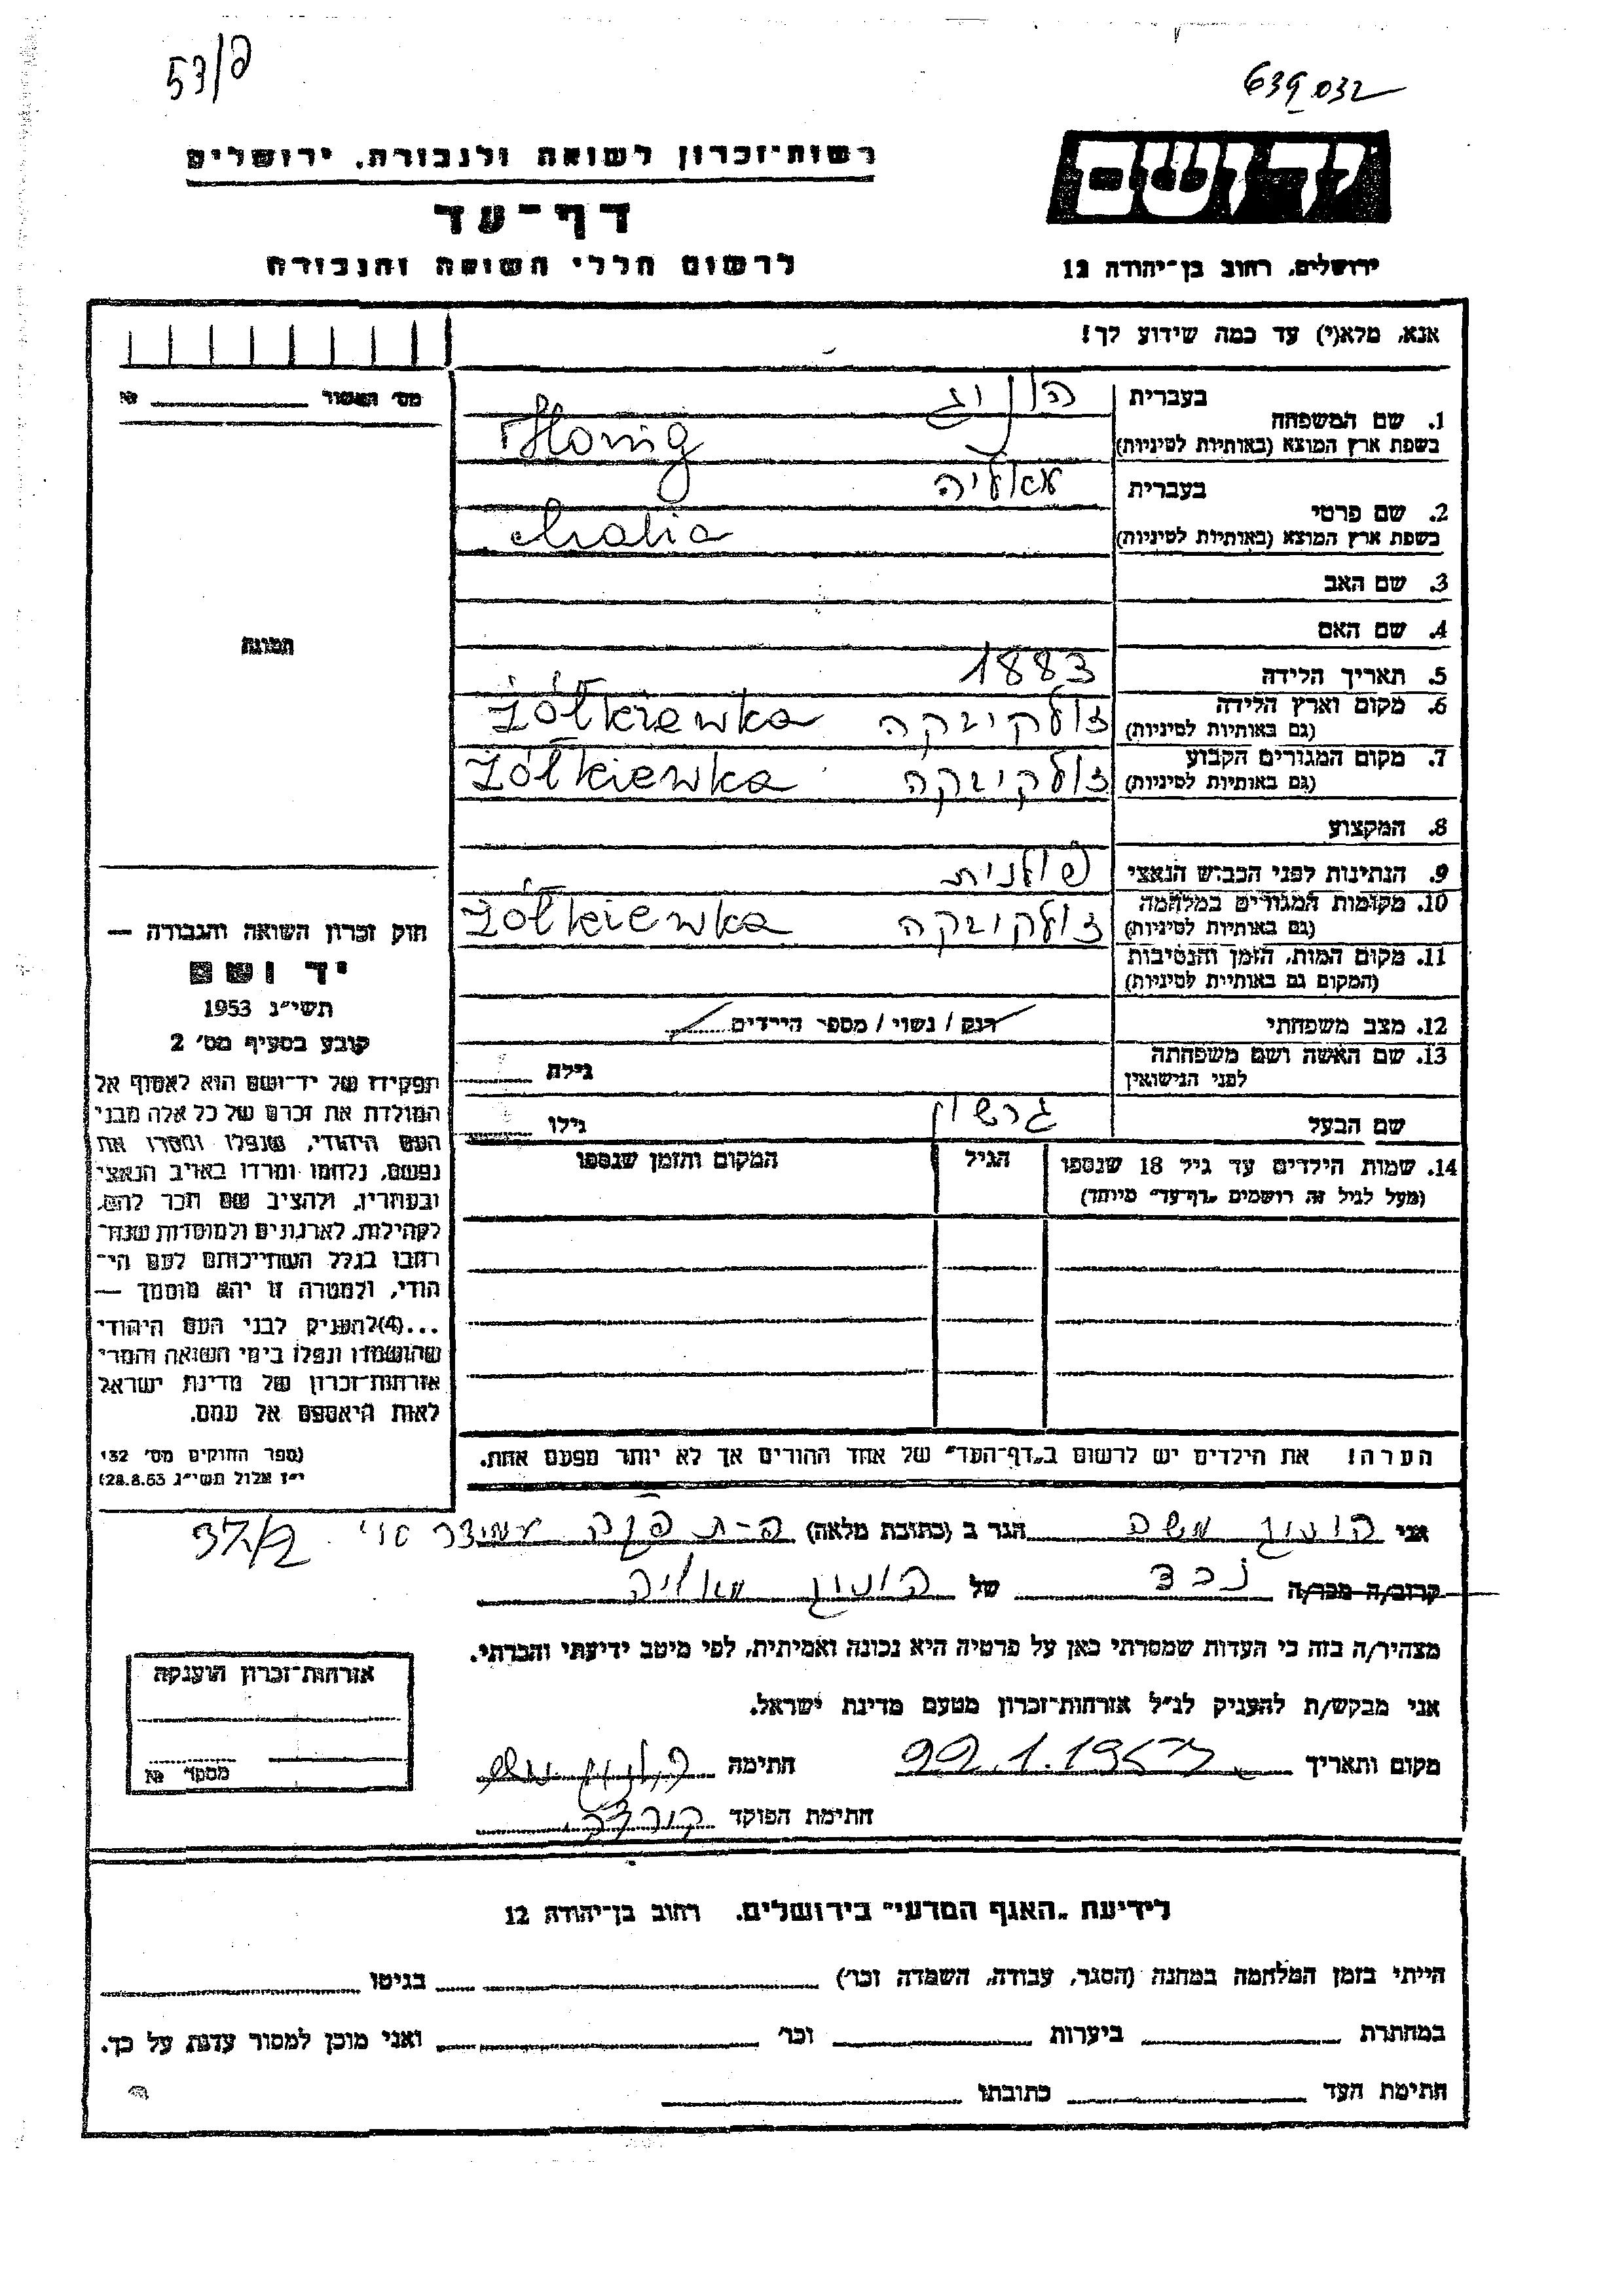 53/פ
639032
יד ושם
רשות־זכרון לשואה ולגבורה, ירושלים
דף־עד
לרשום חללי השואה והגבורה
ירושלים, רחוב בן־יהודה 12
אנא, מלא(י) עד כמה שידוע לך!
מס׳ האשור №
בעברית הוניג
1. שם המשפחה
בשפת ארץ המוצא (באותיות לטיניות) Honig
בעברית מאליה
2. שם פרטי
בשפת ארץ המוצא (באותיות לטיניות) Malia
3. שם האב
4. שם האם
תמונה
5. תאריך הלידה 1883
6. מקום וארץ הלידה
(גם באותיות לטיניות) זולקיבקה Żółkiewka
7. מקום המגורים הקבוע
(גם באותיות לטיניות) זולקיבקה Żółkiewka
8. המקצוע
9. הנתינות לפני הכבוש הנאצי פולנית
10. מקומות המגורים במלחמה
(גם באותיות לטיניות) זולקיבקה Żółkiewka
11. מקום המות, הזמן והנסיבות
(המקום גם באותיות לטיניות)
12. מצב משפחתי רווק / נשוי / מספר הילדים
13. שם האשה ושם משפחתה
לפני הנישואין גילה
שם הבעל גרשון גילו
14. שמות הילדים עד גיל 18 שנספו הגיל המקום והזמן שנספו
(מעל לגיל זה רושמים „דף־עד״ מיוחד)
חוק זכרון השואה והגבורה —
יד ושם
תשי״ג 1953
קובע בסעיף מס׳ 2
תפקידו של יד־ושם הוא לאסוף אל
המולדת את זכרם של כל אלה מבני
העם היהודי, שנפלו ומסרו את
נפשם, נלחמו ומרדו באויב הנאצי
ובעוזריו, ולהציב שם וזכר להם,
לקהילות, לארגונים ולמוסדות שנח־
רבו בגלל השתייכותם לעם הי־
הודי, ולמטרה זו יהא מוסמך —
...(4) להעניק לבני העם היהודי
שהושמדו ונפלו בימי השואה והמרי
אזרחות־זכרון של מדינת ישראל
לאות היאספם אל עמם.
(ספר החוקים מס׳ 132
י״ז אלול תשי״ג 28.8.53)
הערה! את הילדים יש לרשום ב„דף־העד״ של אחד ההורים אך לא יותר מפעם אחת.
אני הוניג משה הגר ב (כתובת מלאה) פ-ת
קרוב/ה מכר/ה נכד של הוניג מאליה
מצהיר/ה בזה כי העדות שמסרתי כאן על פרטיה היא נכונה ואמיתית, לפי מיטב ידיעתי והכרתי.
אני מבקש/ת להעניק לנ״ל אזרחות־זכרון מטעם מדינת ישראל.
מקום ותאריך חתימה הוניג משה
חתימת הפוקד
אזרחות־זכרון הוענקה
מספר №
לידיעת „האגף המדעי״ בירושלים. רחוב בן־יהודה 12
הייתי בזמן המלחמה במחנה (הסגר, עבודה, השמדה וכו׳) בגיטו
במחתרת ביערות וכו׳ ואני מוכן למסור עדות על כך.
חתימת העד כתובתו